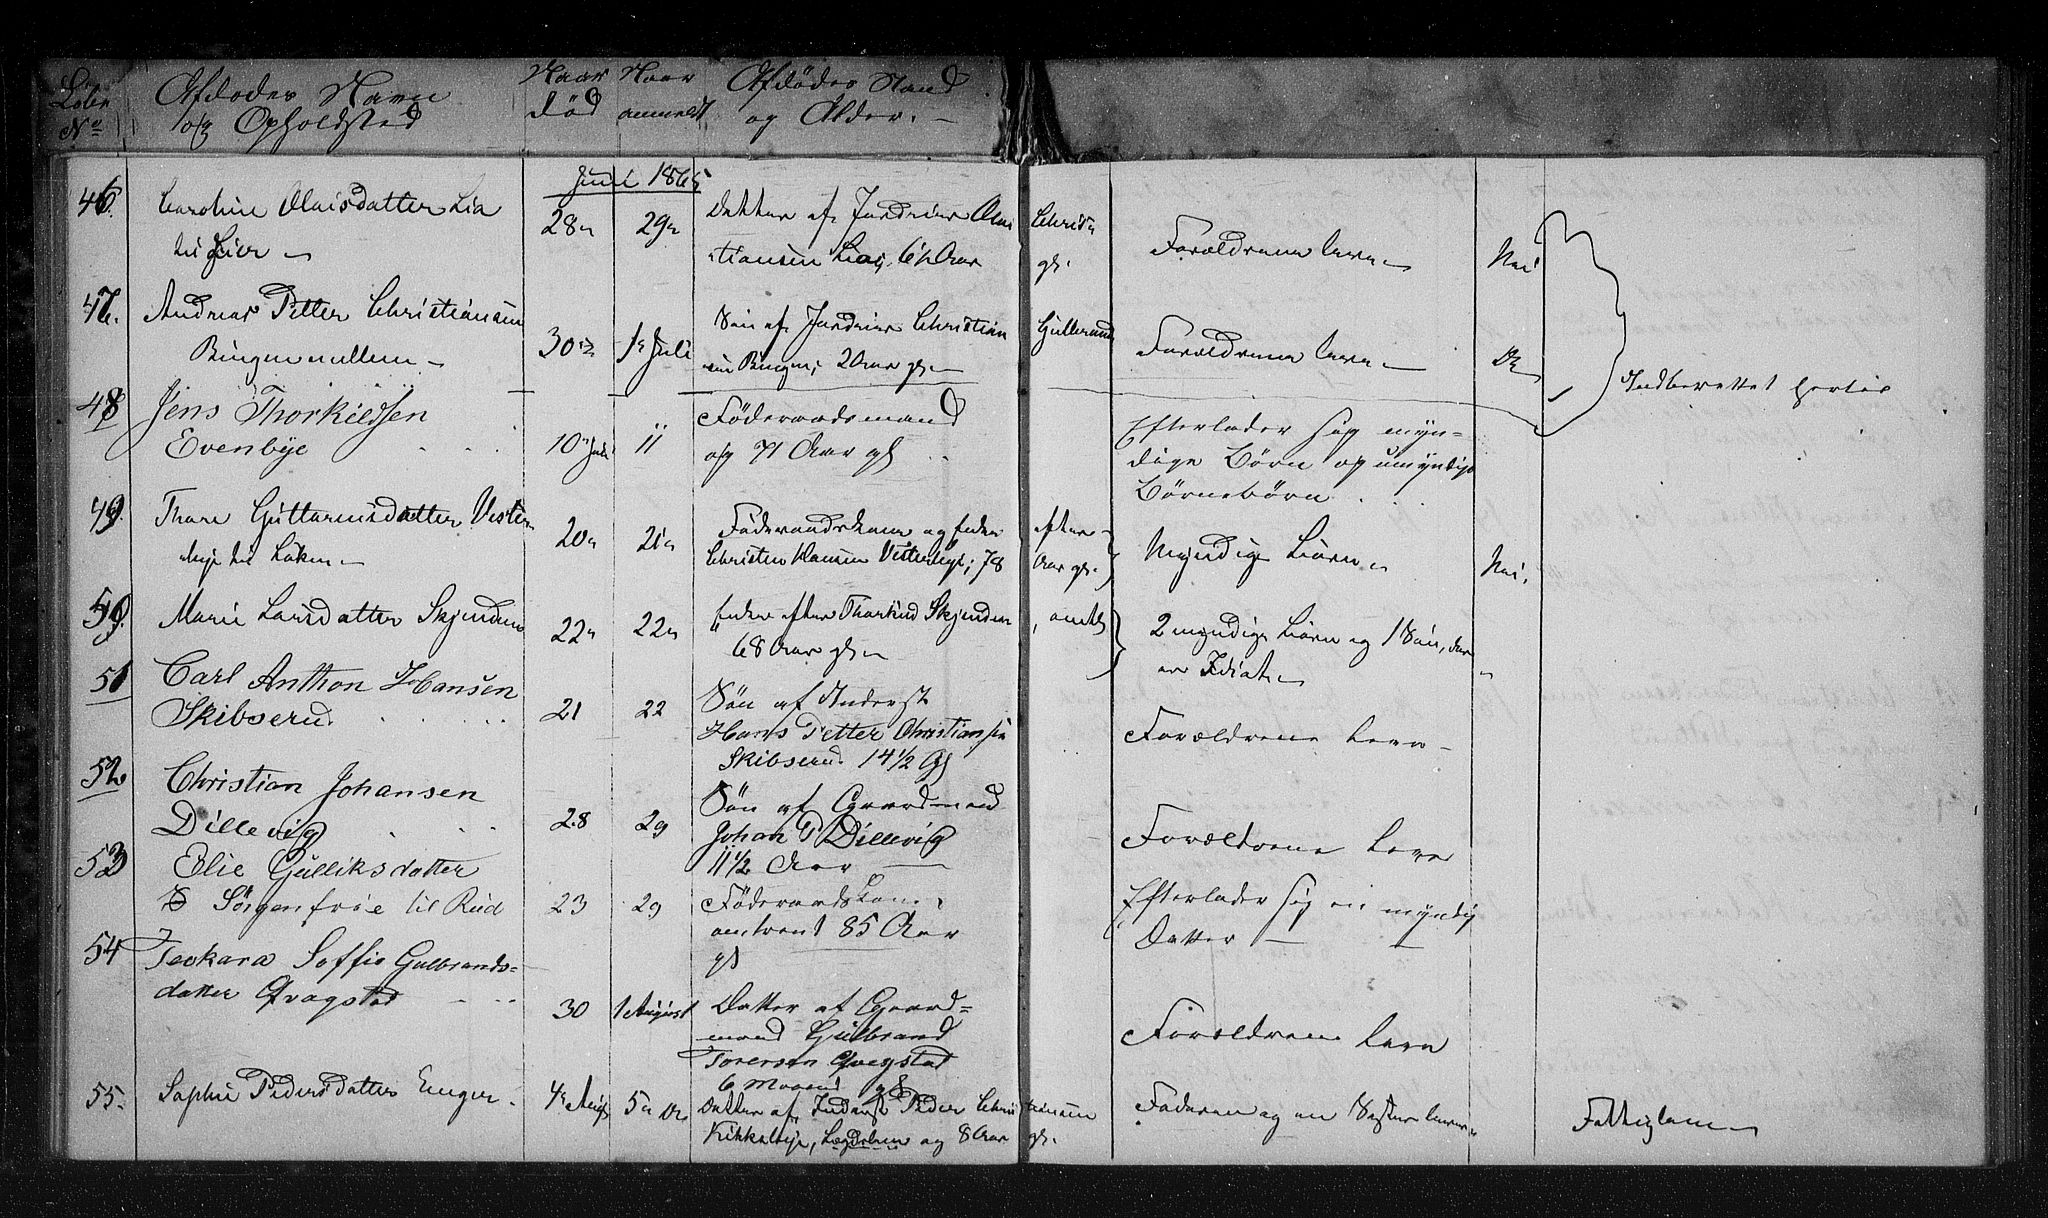 Løbe No
Afdødes Navn og Opholdsted
Naar død
Naar anmeldt
Afdødes Stand og Alder.
Juni 1865
46. Caroline Olaisdatter Lia
til Lier
28n 29n
Datter af Inderster
tiansen Lia, 6½ Aar
Chris
gl.
Forældrene leve
Nei
47. Andreas Petter Christiansen
Bingen mellem
30 1 Juli
Søn af Inderster Christian
sen Bingen; 2 Aar gl.
Forældrene leve
Do
Indberettet hertil
48 Jens Thorkildsen
Evenbye
10 Juli 11
Føderaadsmand
og 71 Aar gl
Efterlader sig myn-
dige Børn og umyndige
Børnebørn
49. Thore Guttormsdatter Vester
bye til Løken
20n 21n
Føderaadskone og Enke
Christen Hansen Vesterbye; 78
efter
Aar gl.
Myndige Børn
Nei.
50. Marie Larsdatter Skjenden
22n 22n
Enke efter Thorkild Skjenden
68 Aar gl.
, omtr
2 myndige Børn og 1 Søn, der
er Idiot
"
51 Carl Anthon Hansen
Skibserud
21 22
Søn af Inderst
Hans Petter Christiansen
Skibserud 14½ Gl
Forældrene Leve
52 Christian Johansen
Dillevig
28 29
Søn af Gaardmand
Johan P Dillevig
11½ Aar
Forældrene Leve
53 Elie Gulliksdatter
Sørgenfrie til Rud
23 29
Føderaads Kone
omtrent 85 Aar
gl
Efterlader sig en myndig
Datter
54 Teokara Soffie Gulbrands-
datter Qvagstad
30 1 August
Datter af Gaard-
mand Gulbrand
Torersen Qvegstad
6 Maaned gl
Forældrene Leve
55. Sophie Pedersdatter Enger
4 Aug 5n Do
Datter af Inderst Peder Chris
tiansen
Kikkelbye, Lægdslem og 8 Aar
gl.
Faderen og en Søster lever
Fattiglem